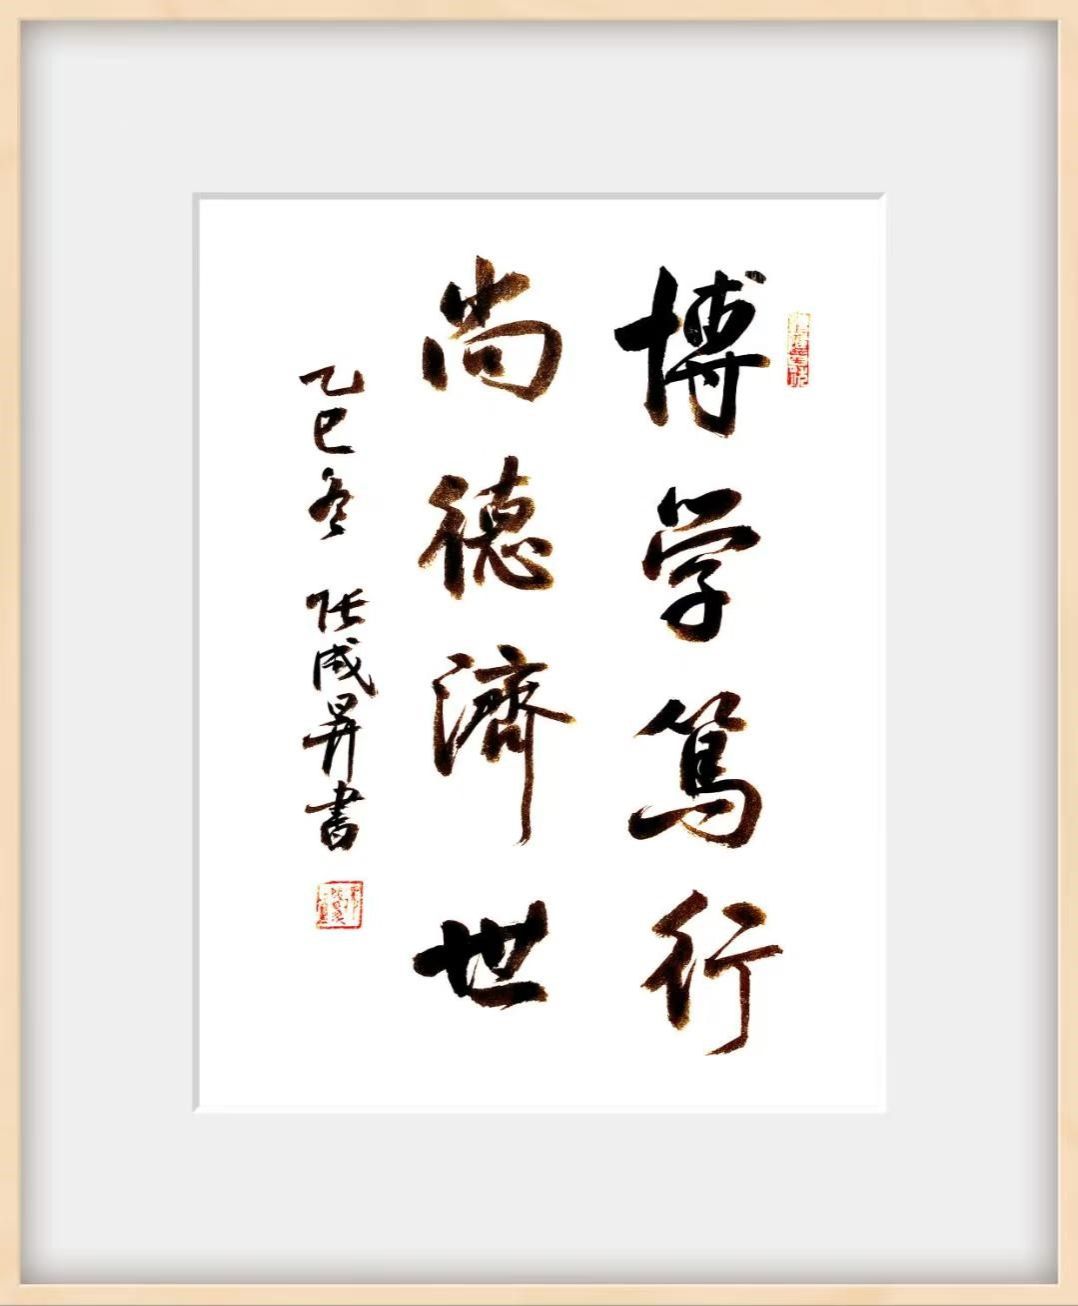 博学篤行
尚德濟世
乙巳冬 张成昇書